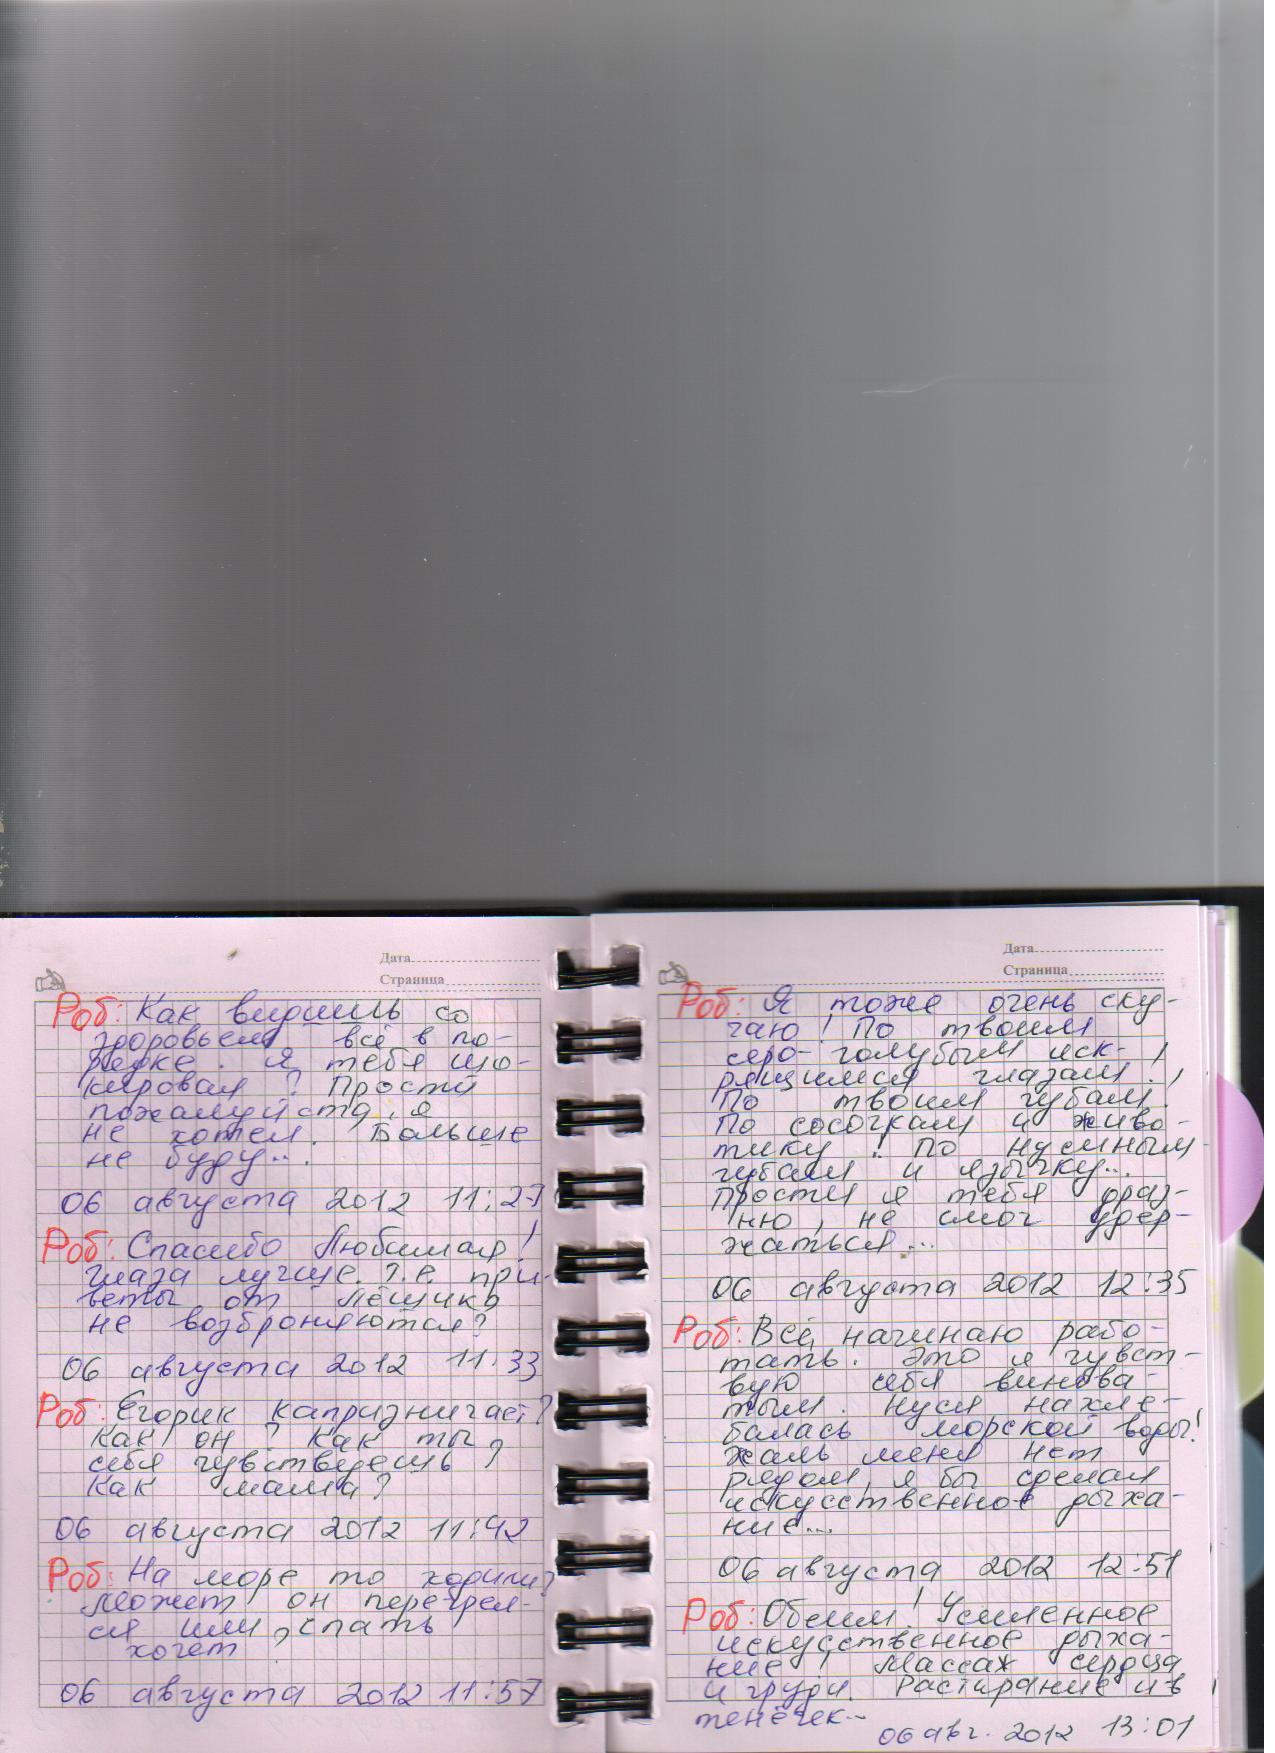 Дата
Страница
Роб: Как видишь со
здоровьем всё в по-
рядке. Я тебя шо-
кировал? Прости
пожалуйста, я
не хотел. Больше
не буду...
06 августа 2012 11:27
Роб: Спасибо Любимая!
Глаза лучше. Т.е. при-
веты от Лёщика
не возброняются?
06 августа 2012 11:33
Роб: Егорик капризничает?
Как он? Как ты
себя чувствуешь?
Как мама?
06 августа 2012 11:42
Роб: На море то ходили?
Может он перегрел-
ся или спать
хочет?
06 августа 2012 11:57
Дата
Страница
Роб: Я тоже очень ску-
чаю! По твоим
серо-голубым иск-
рящимся глазам!
По твоим губам!
По сосочкам и живо-
тику! По нусиным
губам и язычку...
Прости я тебя драз-
ню, не смог удер-
жаться...
06 августа 2012 12:35
Роб: Всё, начинаю рабо-
тать. Это я чувст-
вую себя винова-
тым. Нуся нахле-
балась морской воды!
Жаль меня нет
рядом, я бы сделал
искусственное дыха-
ние...
06 августа 2012 12:51
Роб: Обеим! Усиленное
искусственное дыха-
ние! Массаж сердца
и груди. Растирание и в
тенёчек...
06 авг. 2012 13:01